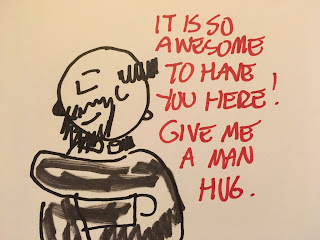 IT IS SO
AWESOME
TO HAVE
YOU HERE!
GIVE ME
A MAN
HUG.